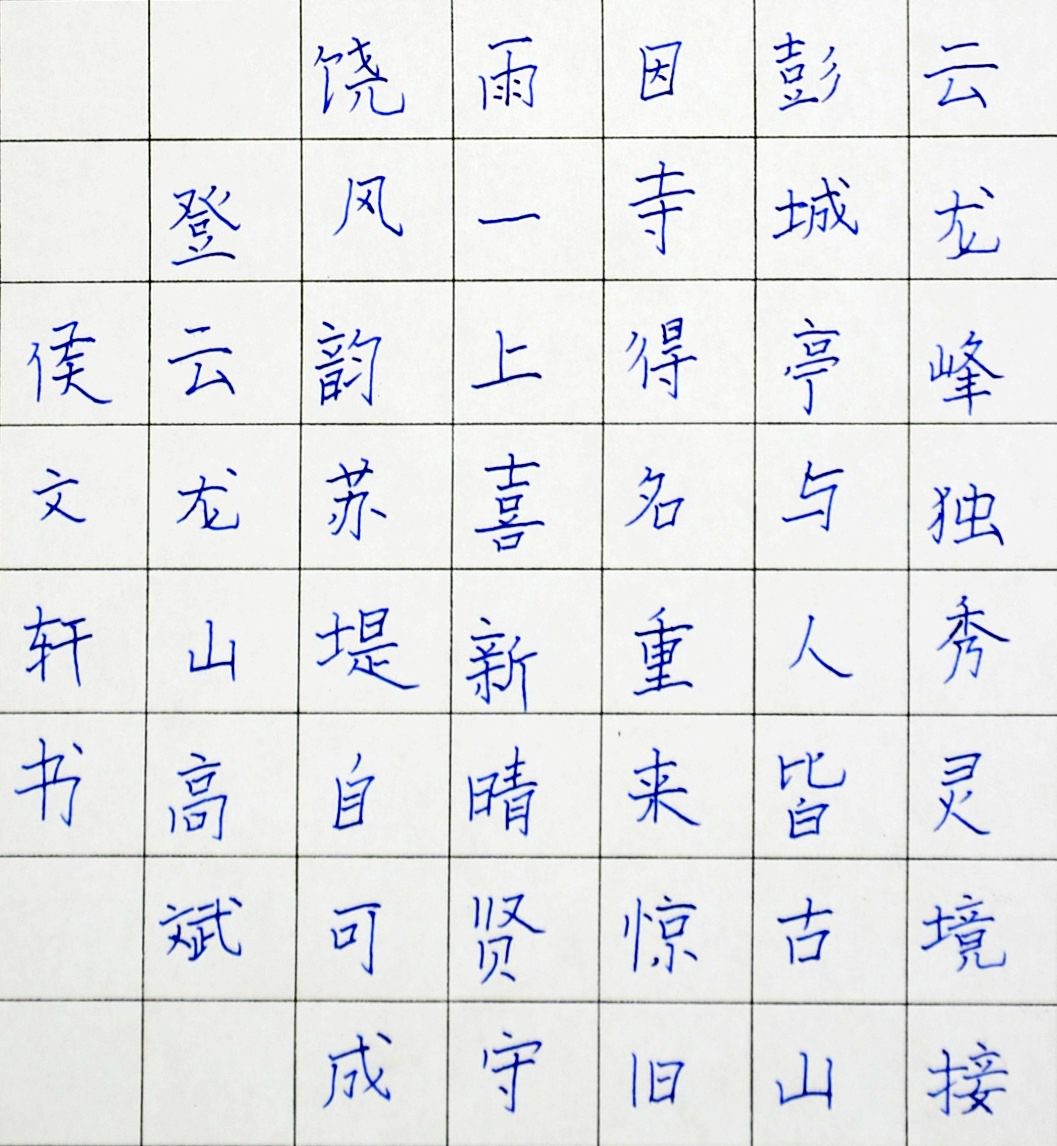 云龙峰独秀灵境接
彭城亭与人皆古山
因寺得名重来惊旧
雨一上喜新晴贤守
饶风韵苏堤自可成
登云龙山高斌
侯文轩书